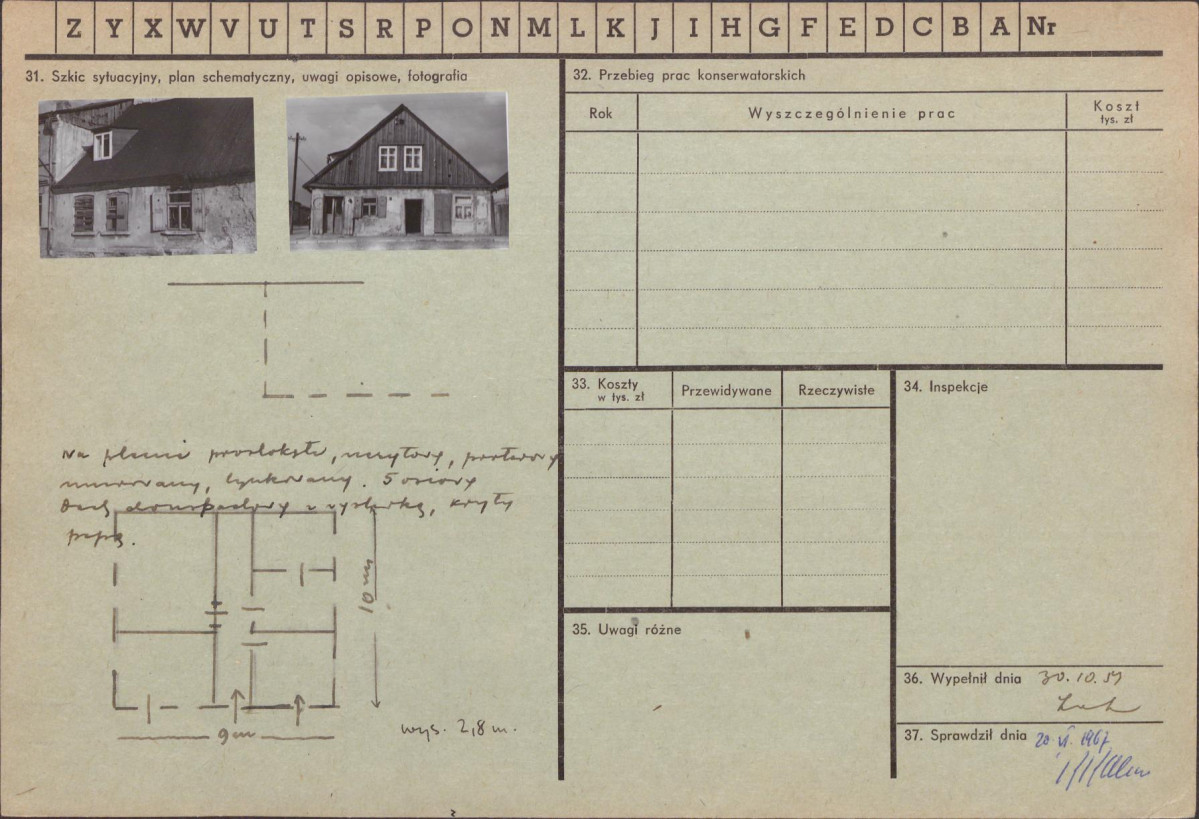 Z Y X W V U T S R P O N M L K J I H G F E D C B A Nr
31. Szkic sytuacyjny, plan schematyczny, uwagi opisowe, fotografia
Na planie prostokąta, szczytowy, parterowy
murowany, tynkowany. 5 osiowy
Dach dwuspadowy z wystawką, kryty
papą.
10 m
9 m
wys. 2,8 m.
32. Przebieg prac konserwatorskich
Rok
Wyszczególnienie prac
Koszt
tys. zł
33. Koszty
w tys. zł
Przewidywane
Rzeczywiste
34. Inspekcje
35. Uwagi różne
36. Wypełnił dnia 30.10.59
37. Sprawdził dnia 20 VI. 1967